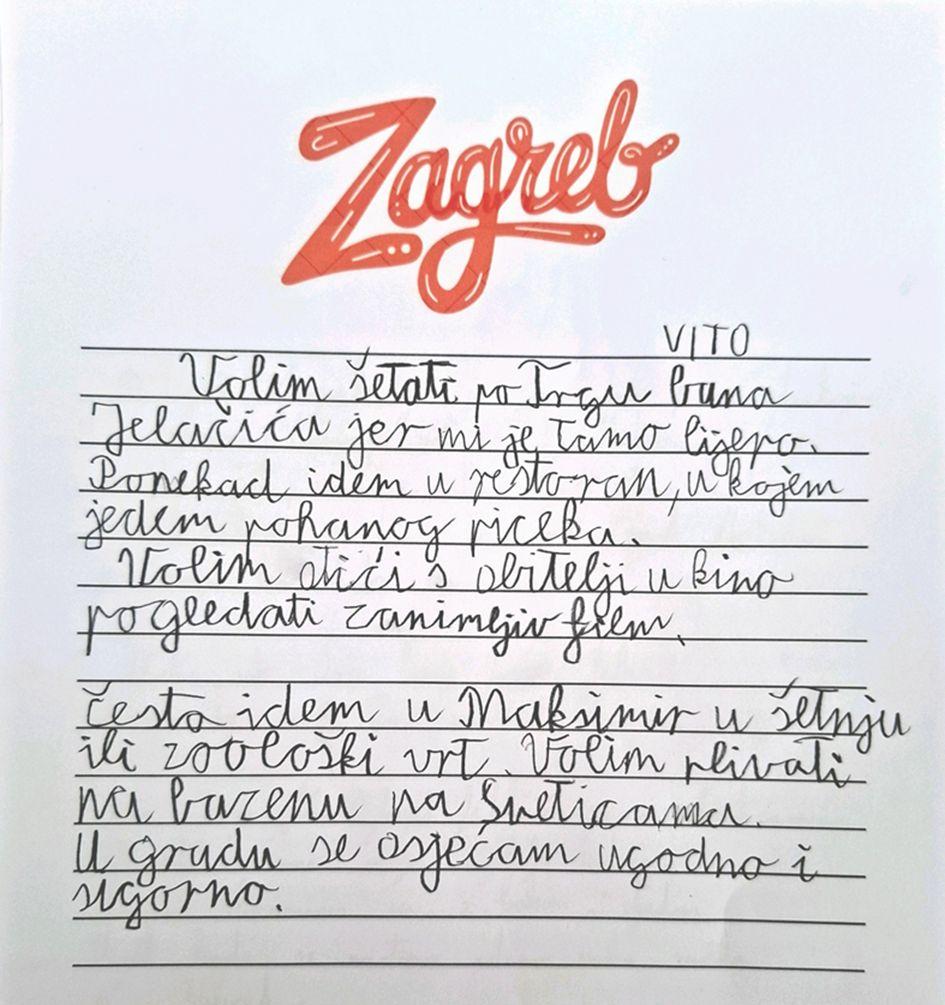 Zagreb
VITO
Volim šetati po Trgu bana
Jelačića jer mi je tamo lijepo.
Ponekad idem u restoran, u kojem
jedem pohanog piceka.
Volim otići s obitelji u kino
pogledati zanimljiv film.
Često idem u Maksimir u šetnju
ili zoološki vrt. Volim plivati
na bazenu na Sveticama.
U gradu se osjećam ugodno i
sigorno.